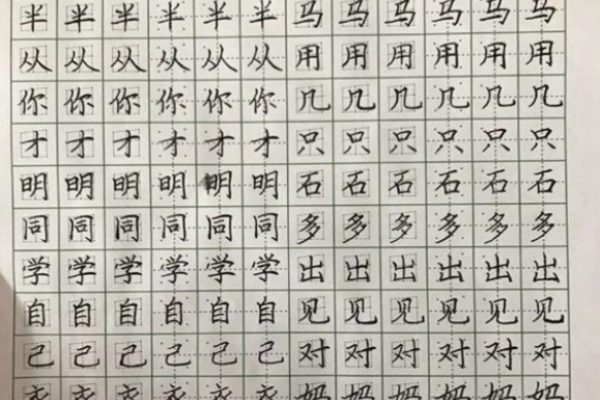 半半半半半半马马马马马马
从从从从从从用用用用用用
你你你你你你几几几几几几
才才才才才才只只只只只只
明明明明明明石石石石石石
同同同同同同多多多多多多
学学学学学学出出出出出出
自自自自自自见见见见见见
己己己己己己对对对对对对
妈妈妈妈妈妈